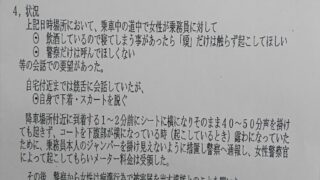 4，状況
上記日時場所において、乗車中の道中で女性が乗務員に対して
⊖ 飲酒しているので寝てしまう事があったら「頬」だけは触らず起こしてほしい
⊖ 警察だけは呼んでほしくない
等の会話での要望があった。
自宅付近までは饒舌に会話していたが、
⊖自身で下着・スカートを脱ぐ
降車場所付近に到着する1~2分前にシートに横になりそのまま40~50分声を掛け
ても起きず、コートを下腹部が横になっている時（起こしているとき）露わになってい
たために、乗務員本人のジャンバーを掛け見えないように措置し警察へ通報し、女性警察官
によって起こしてもらいメーター料金は受領した。